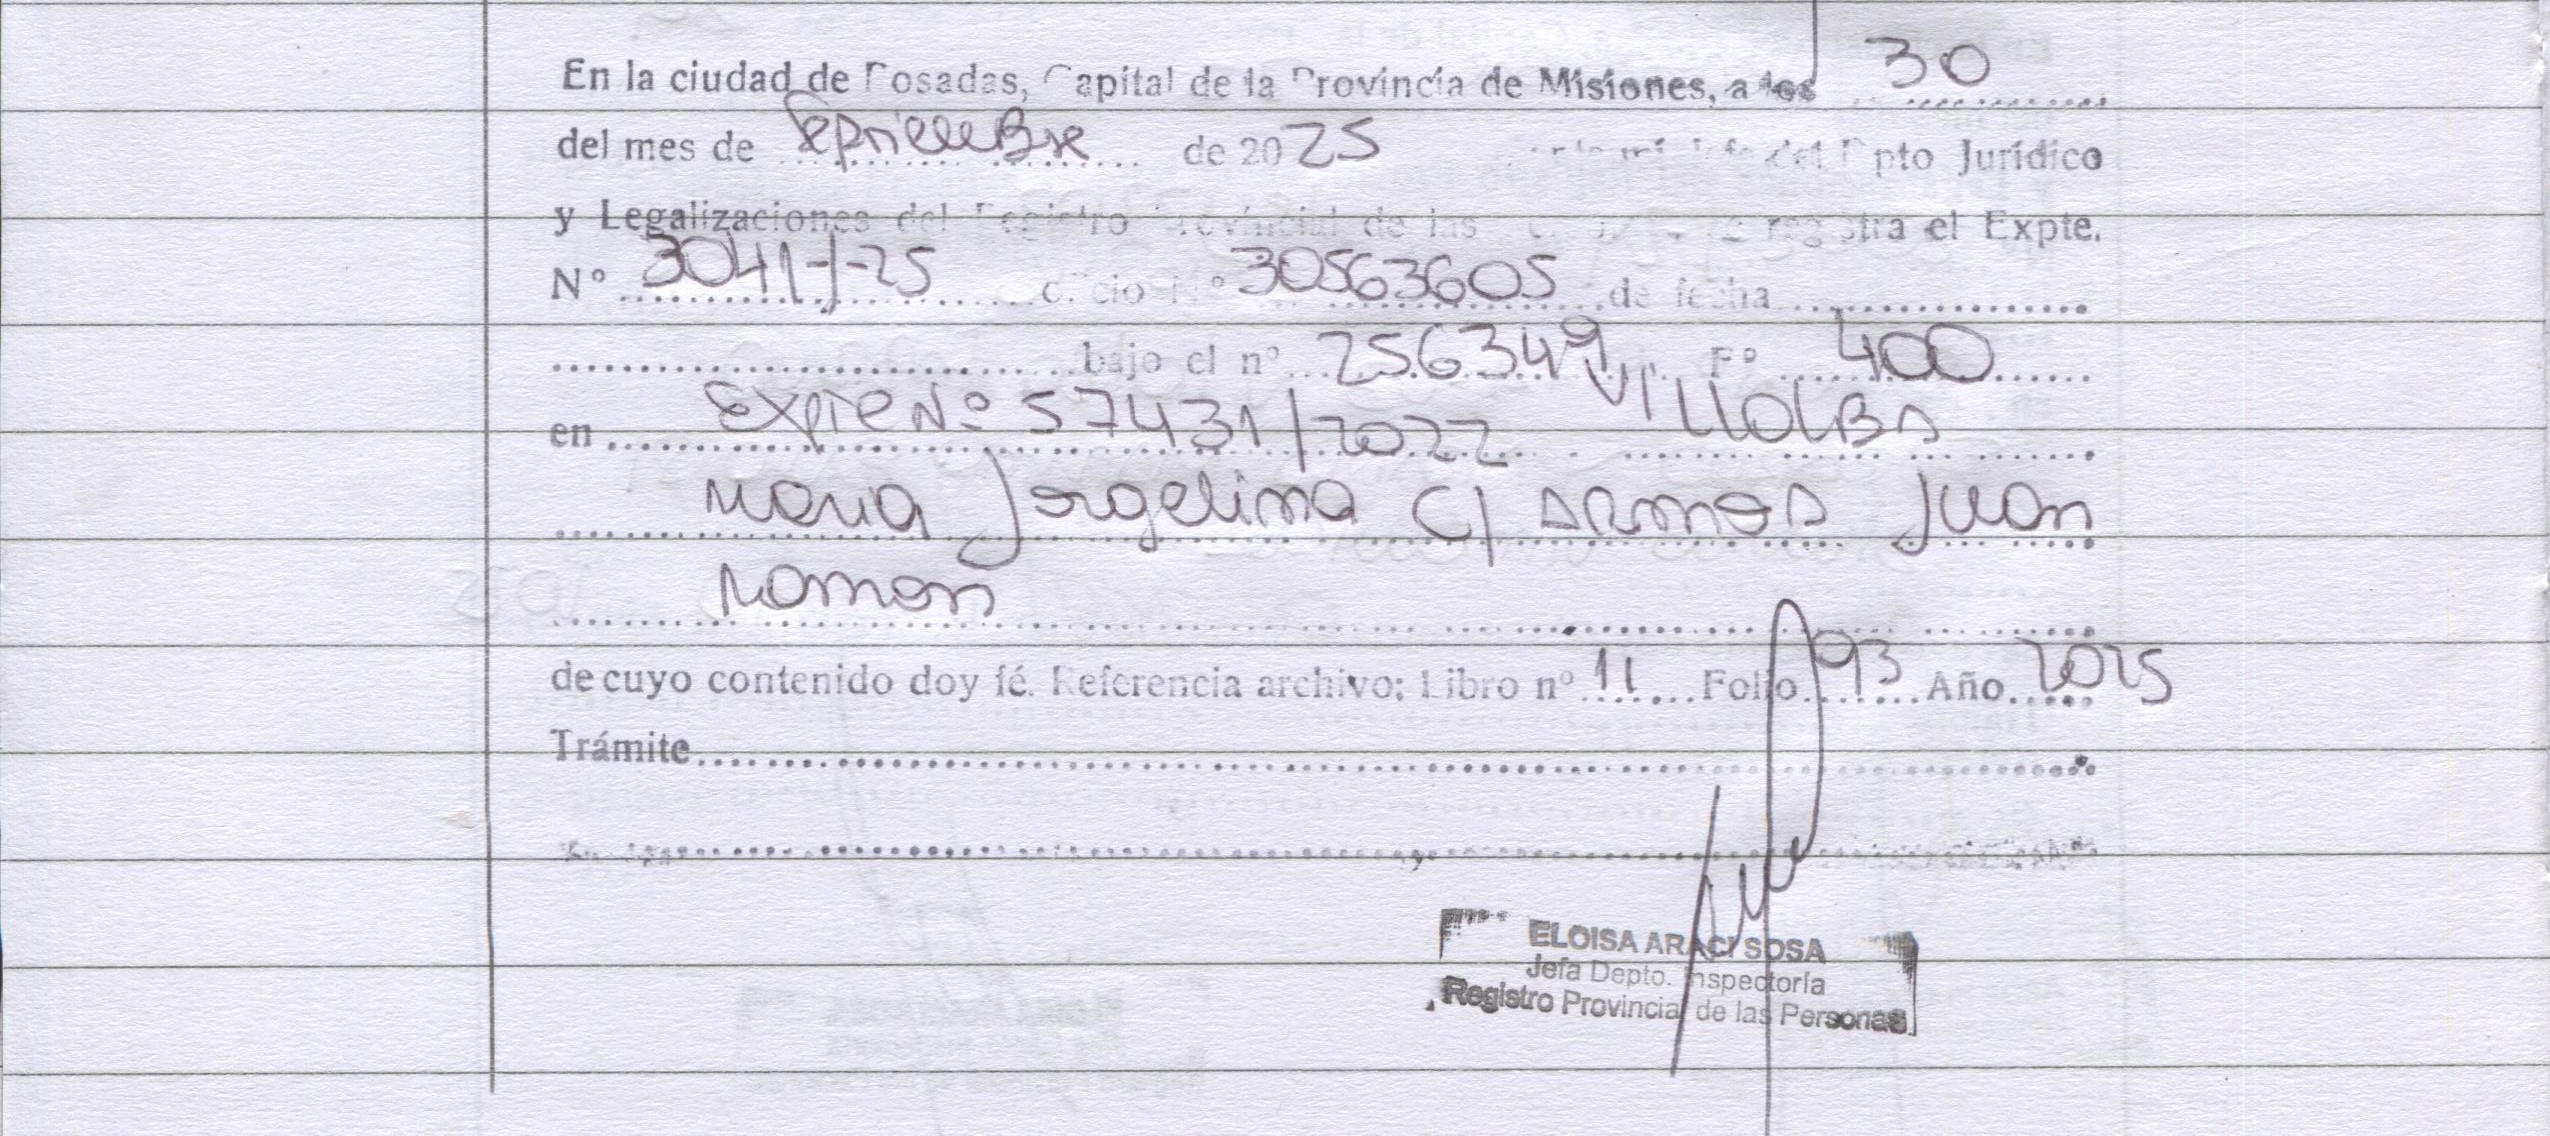 En la ciudad de Posadas, Capital de la Provincia de Misiones, a los 30
del mes de Septiembre de 2025 ante mí Jefe del Dpto Jurídico
y Legalizaciones del Registro Provincial de las registra el Expte.
Nº 3041-J-25 oficio Nº 30563605 de fecha
bajo el nº 256349 Fº 400
en Expte Nº 57431/2022 Villalba
Maria Jorgelina c/ Juan
Ramon
de cuyo contenido doy fé. Referencia archivo: Libro nº 11 Folio 93 Año 2025
Trámite
ELOISA ARACI SOSA
Jefa Depto. Inspectoría
Registro Provincial de las Personas